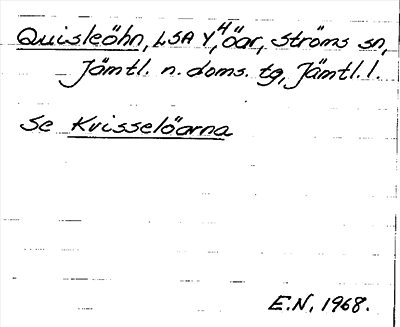 Quisleöhn, LSA Y, 4 öar, Ströms sn,
Jämtl. n. doms. tg, Jämtl. l.
Se Kvisselöarna
E.N, 1968.